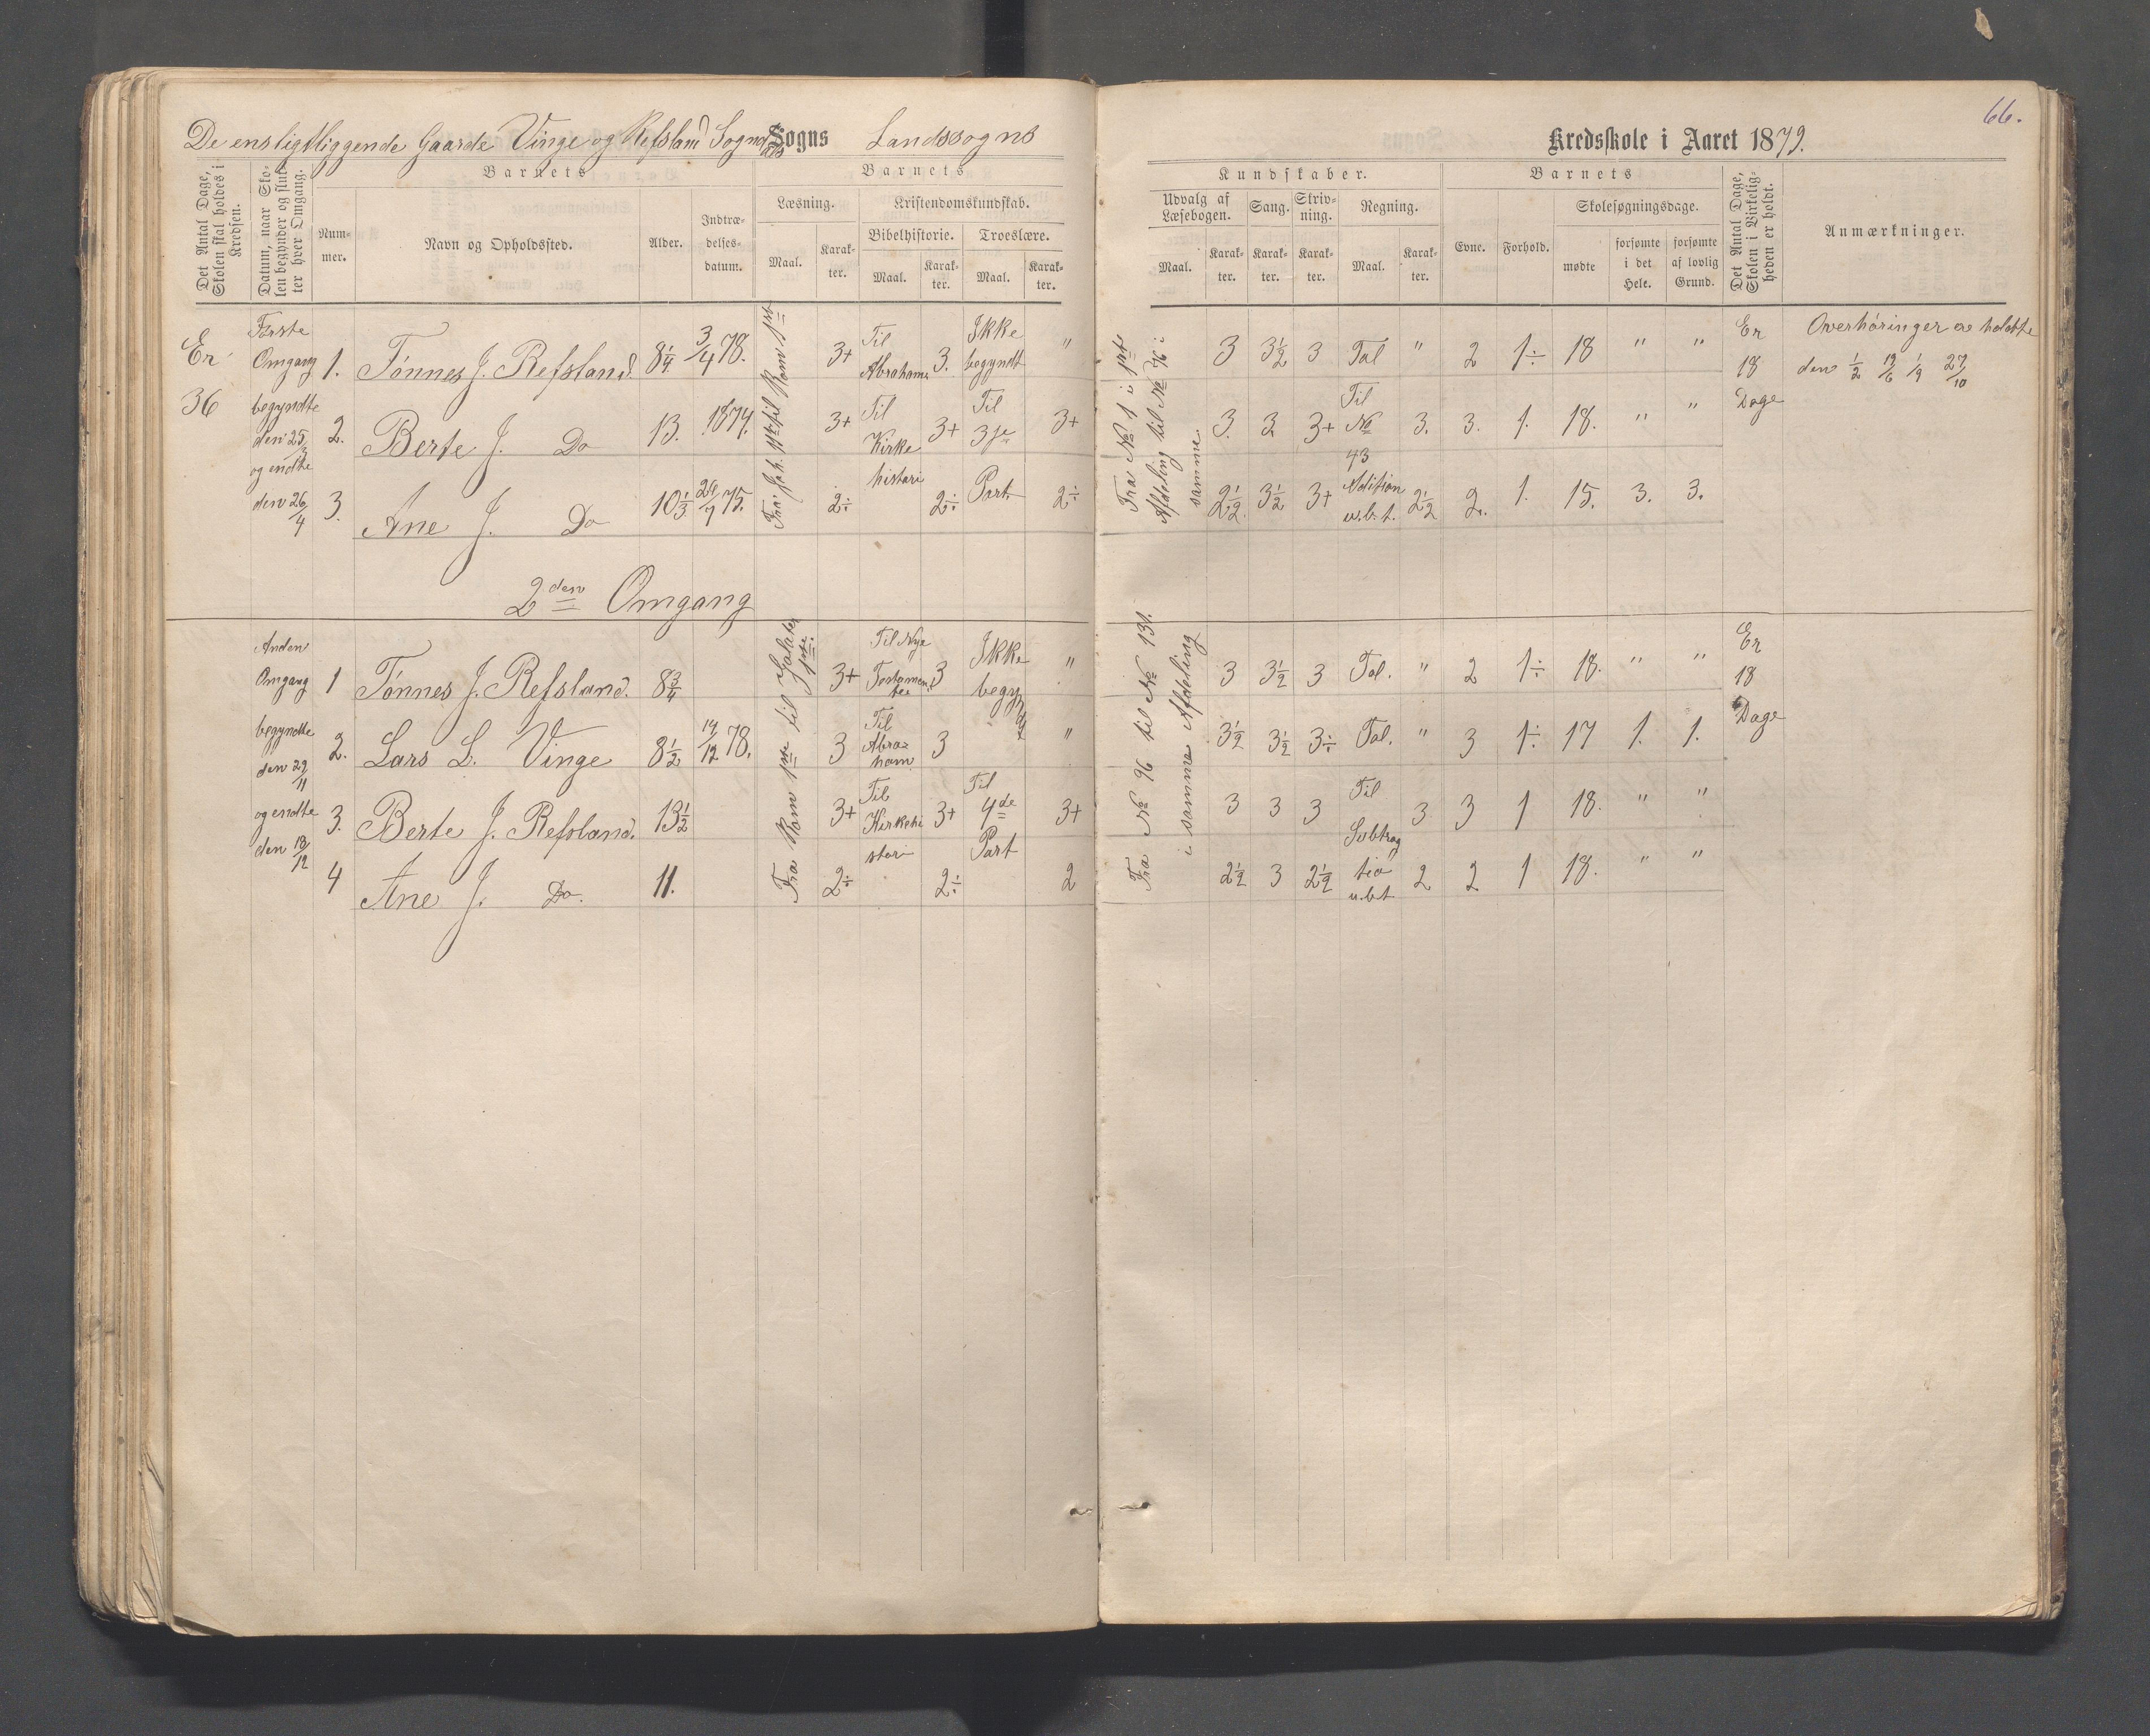 66.
De ensligtliggende Gaarde Vinge og Refsland Sogndals Sogns Landssogns Kredsskole i Aaret 1879.
Det Antal Dage, Skolen skal holdes i Kredsen.
Datum, naar Skolen begynder og slutter hver Omgang.
Barnets
Nummer.
Navn og Opholdssted.
Alder.
Indtrædelsesdatum.
Barnets
Læsning.
Maal.
Karakter.
Kristendomskundskab.
Bibelhistorie.
Maal.
Karakter.
Troeslære.
Maal.
Karakter.
Kundskaber.
Udvalg af Læsebogen.
Maal.
Karakter.
Sang.
Karakter.
Skrivning.
Karakter.
Regning.
Maal.
Karakter.
Barnets
Evne.
Forhold.
Skolesøgningsdage.
mødte
forsømte i det Hele.
forsømte af lovlig Grund.
Det Antal Dage, Skolen i Virkeligheden er holdt.
Anmærkninger.
Er 36
Første Omgang begyndte den 25/3 og endte den 26/4
Fra Joh. 1ste til Rom 1ste
Fra No 1 i 1ste Afdeling til No 96 i samme
1. Tønnes J. Refsland. 8 1/4 3/4 78. 3+ Til Abraham 3. Ikke begyndt " 3 3 1/2 3 Tal " 2 1÷ 18 " "
2. Berte J. Do 13. 1874. 3+ Til Kirkehistori 3+ Til 3je Part 3+ 3. 3 3+ Til No 43 3. 3. 1. 18. " "
3. Ane J. Do 10 1/3 29/7 75. 2÷ 2÷ 2÷ 2 1/2 3 1/2 3+ Adition u.b.t. 2 1/2 2. 1. 15. 3. 3.
Er 18 Dage
Overhøringer ere holdte
den 1/2 12/6 1/9 27/10
2den Omgang
Anden Omgang begyndte den 29/11 og endte den 18/12
Fra Rom 1ste til Galater 1ste.
Fra No 96 til No 131. i samme Afdeling
1 Tønnes J. Refsland. 8 3/4 3+ Til Nye Testamentee 3 Ikke begyndt " 3 3 1/2 3 Tal. " 2 1÷ 18. " "
2. Lars L. Vinge 8 1/2 14/12 78. 3 Til Abraham 3 " 3 1/2 3 1/2 3÷ Tal. " 3 1÷ 17 1. 1.
3. Berte J. Refsland. 13 1/2 3+ Til Kirkehistori 3+ Til 4de Part 3+ 3 3 3 Til Subtragtio u.b.t 3 3 1 18. " "
4 Ane J. Do. 11. 2÷ 2÷ 2 2 1/2 3 2 1/2 2 2 1 18. " "
Er 18 Dage